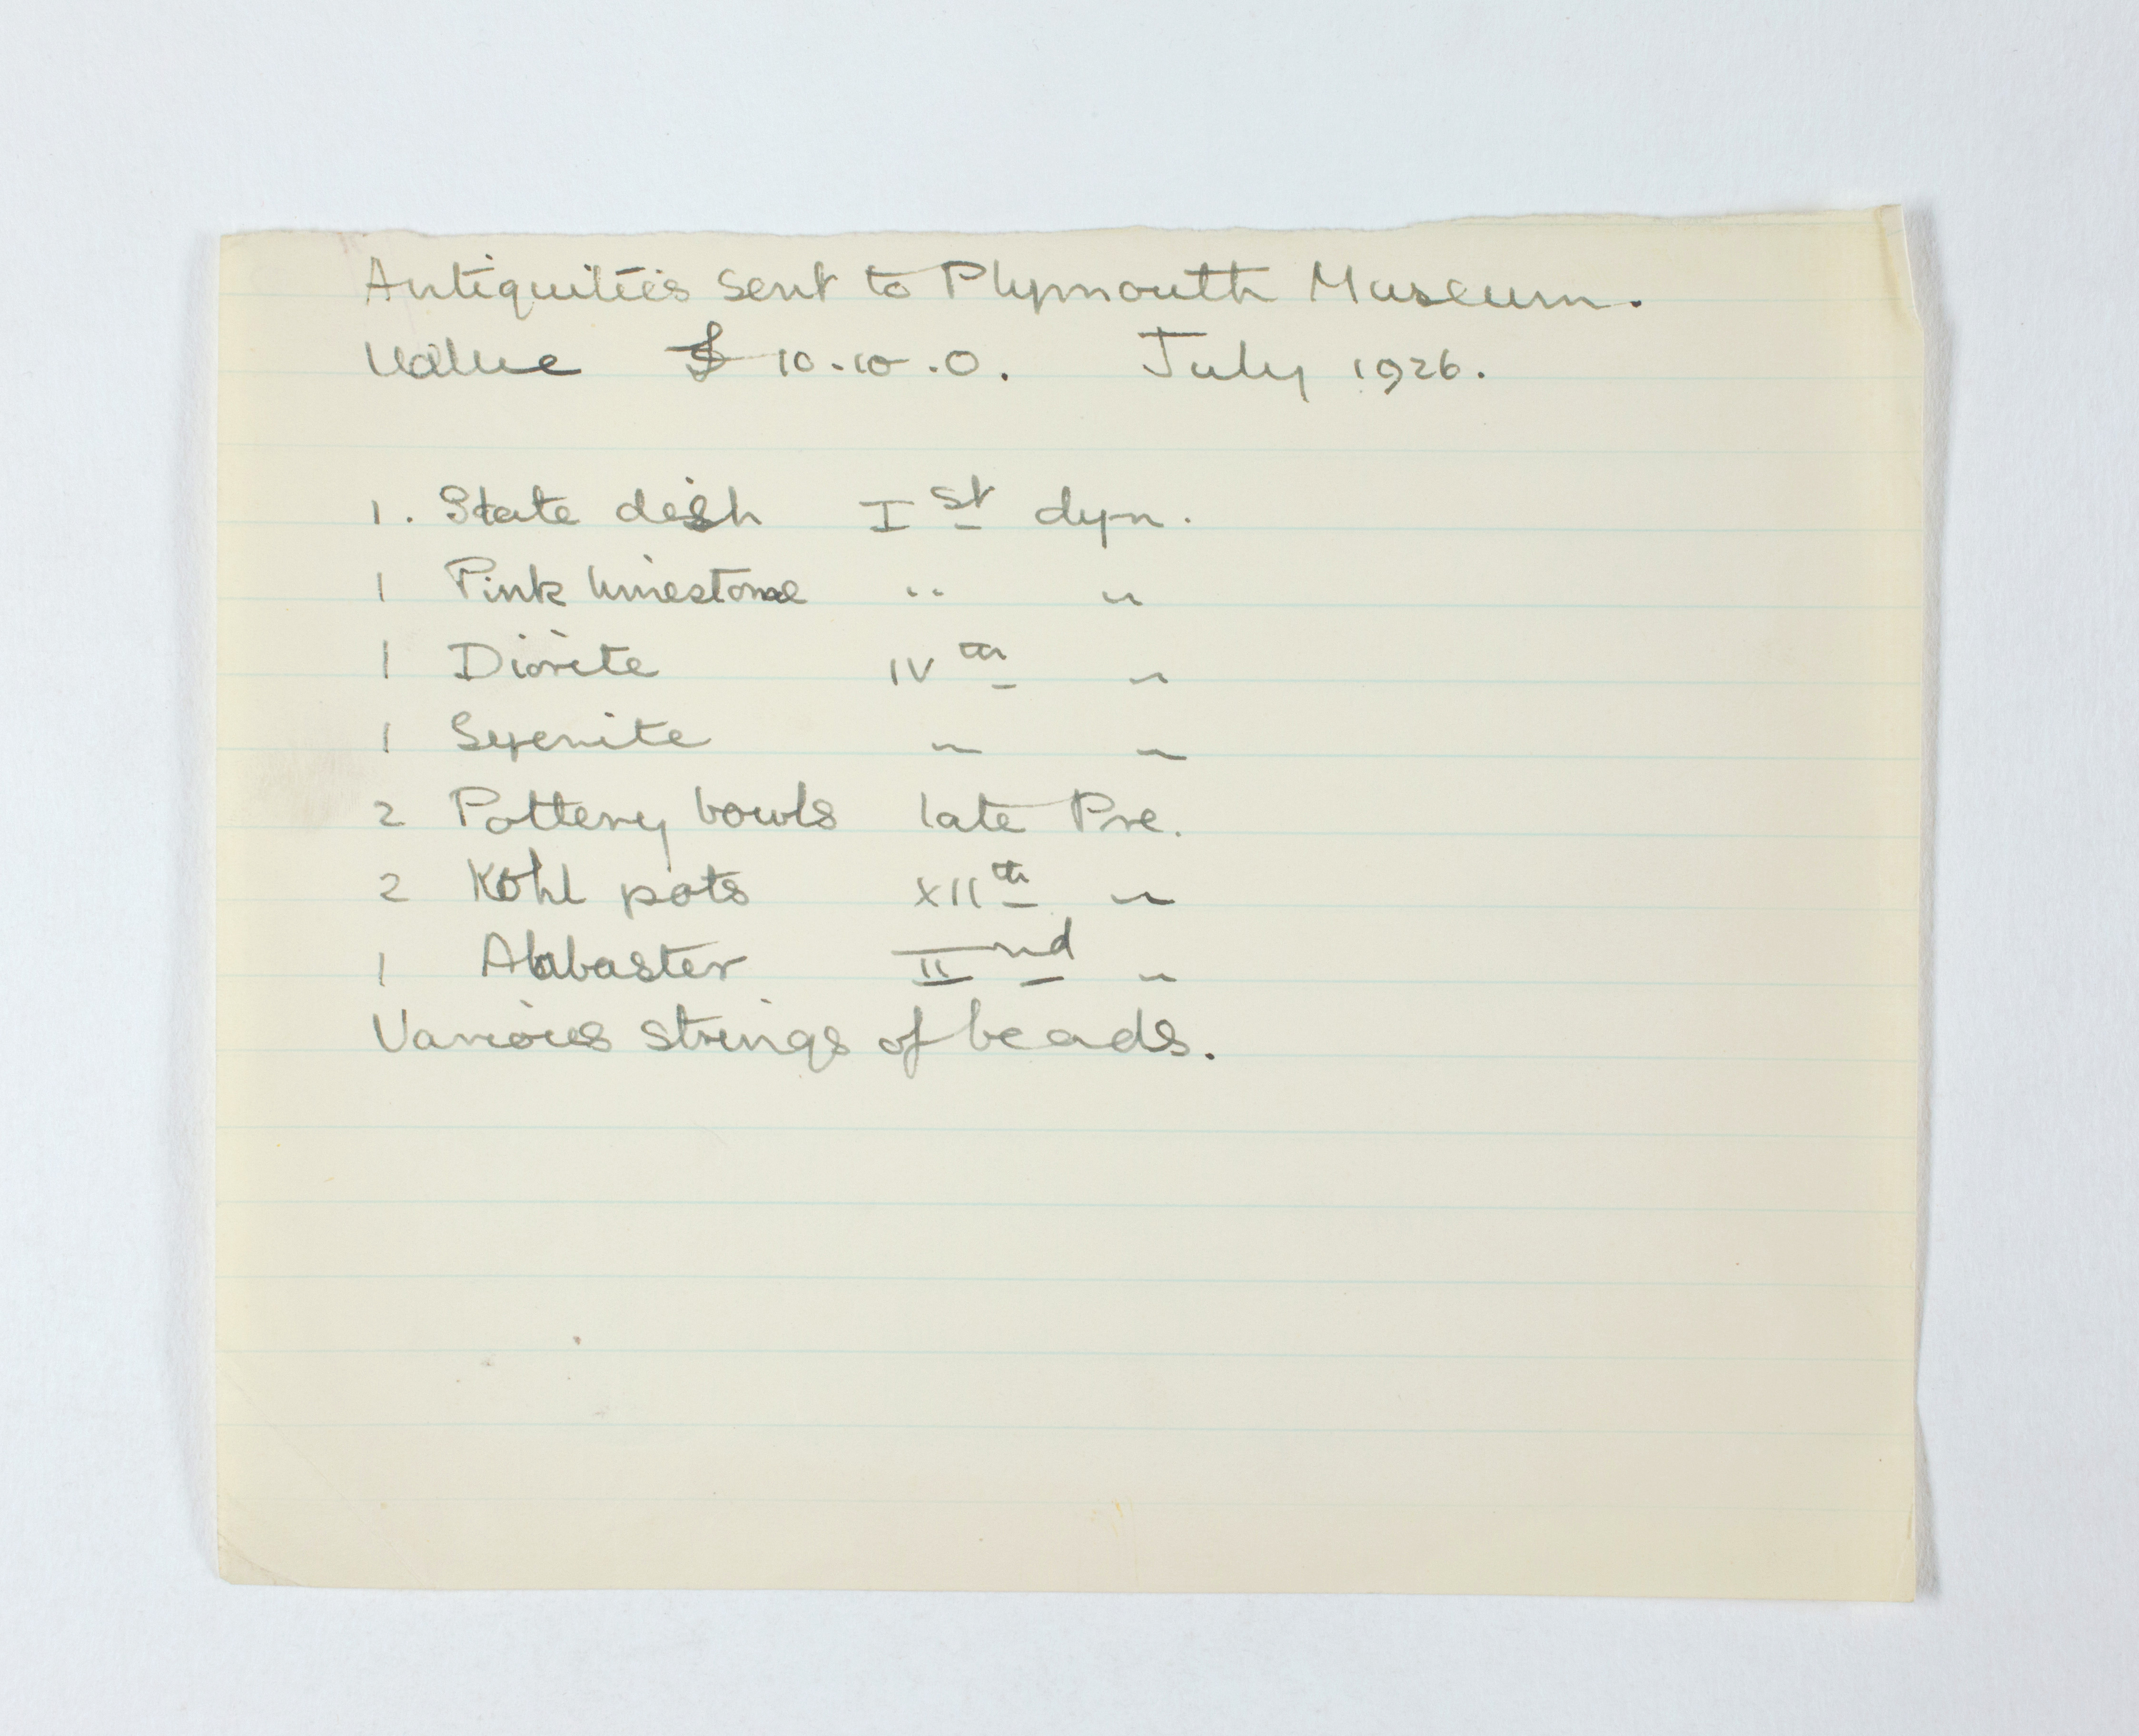 Antiquities sent to Plymouth Museum.
Value £ 10-10.0. July 1926.
1. Slate dish Ist dyn.
1 Pink limestone " "
1 Diorite IVth "
1 Syenite " "
2 Pottery bowls late Pre.
2 Kohl pots XIIth "
1 Alabaster IInd "
Various strings of beads.